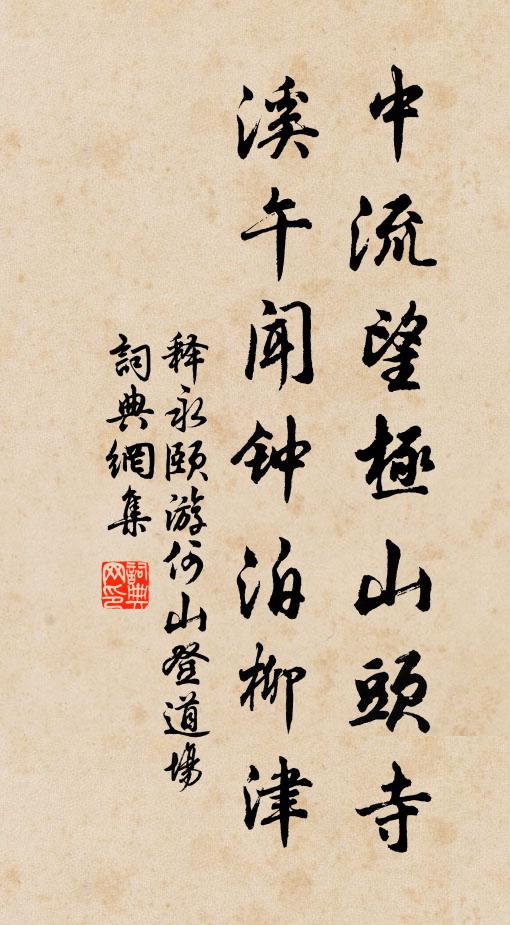 中流望極山頭寺
溪午闻钟泊柳津
释永颐游何山登道場
詞典網集
詞典
网印